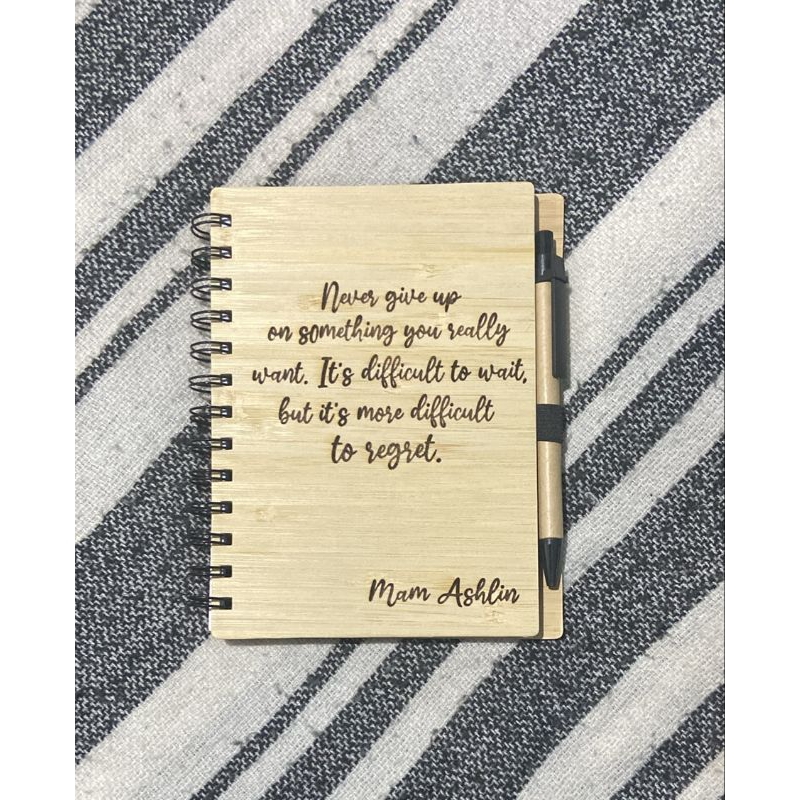 Never give up
on something you really
want. It's difficult to wait,
but it's more difficult
to regret.
Mam Ashlin